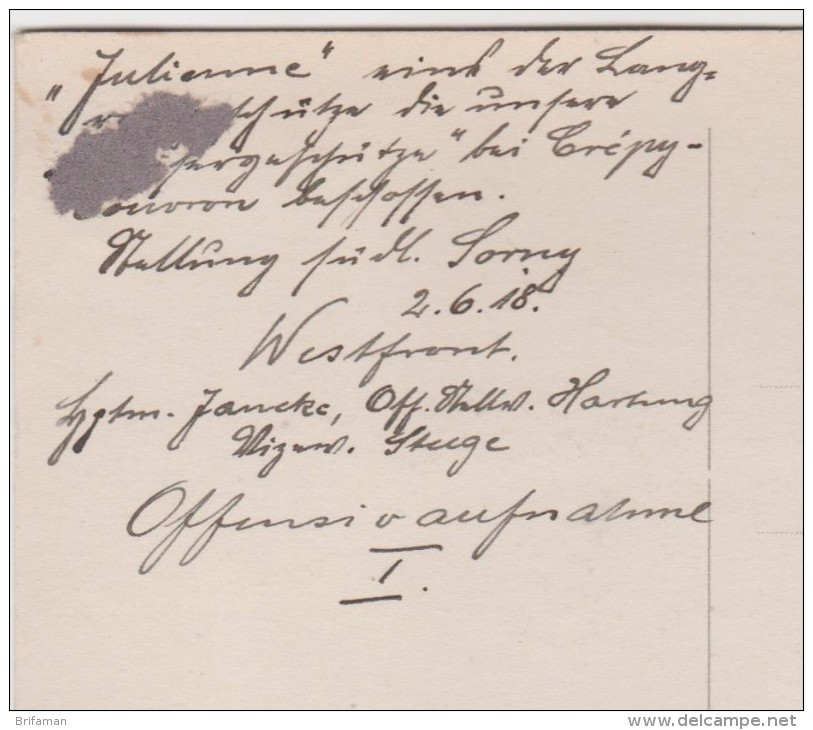 „Julienne“ eins der Lang=
schütze die unsere
sergeschütze“ bei Crépy-
ouvron beschossen.
Stellung südl. Sorny
2.6.18.
Westfront.
Hptm. Jancke, Off. Stellv. Hartung
Vizew. Stuge
Offensivaufnahme
I.
Brifaman
www.delcampe.net